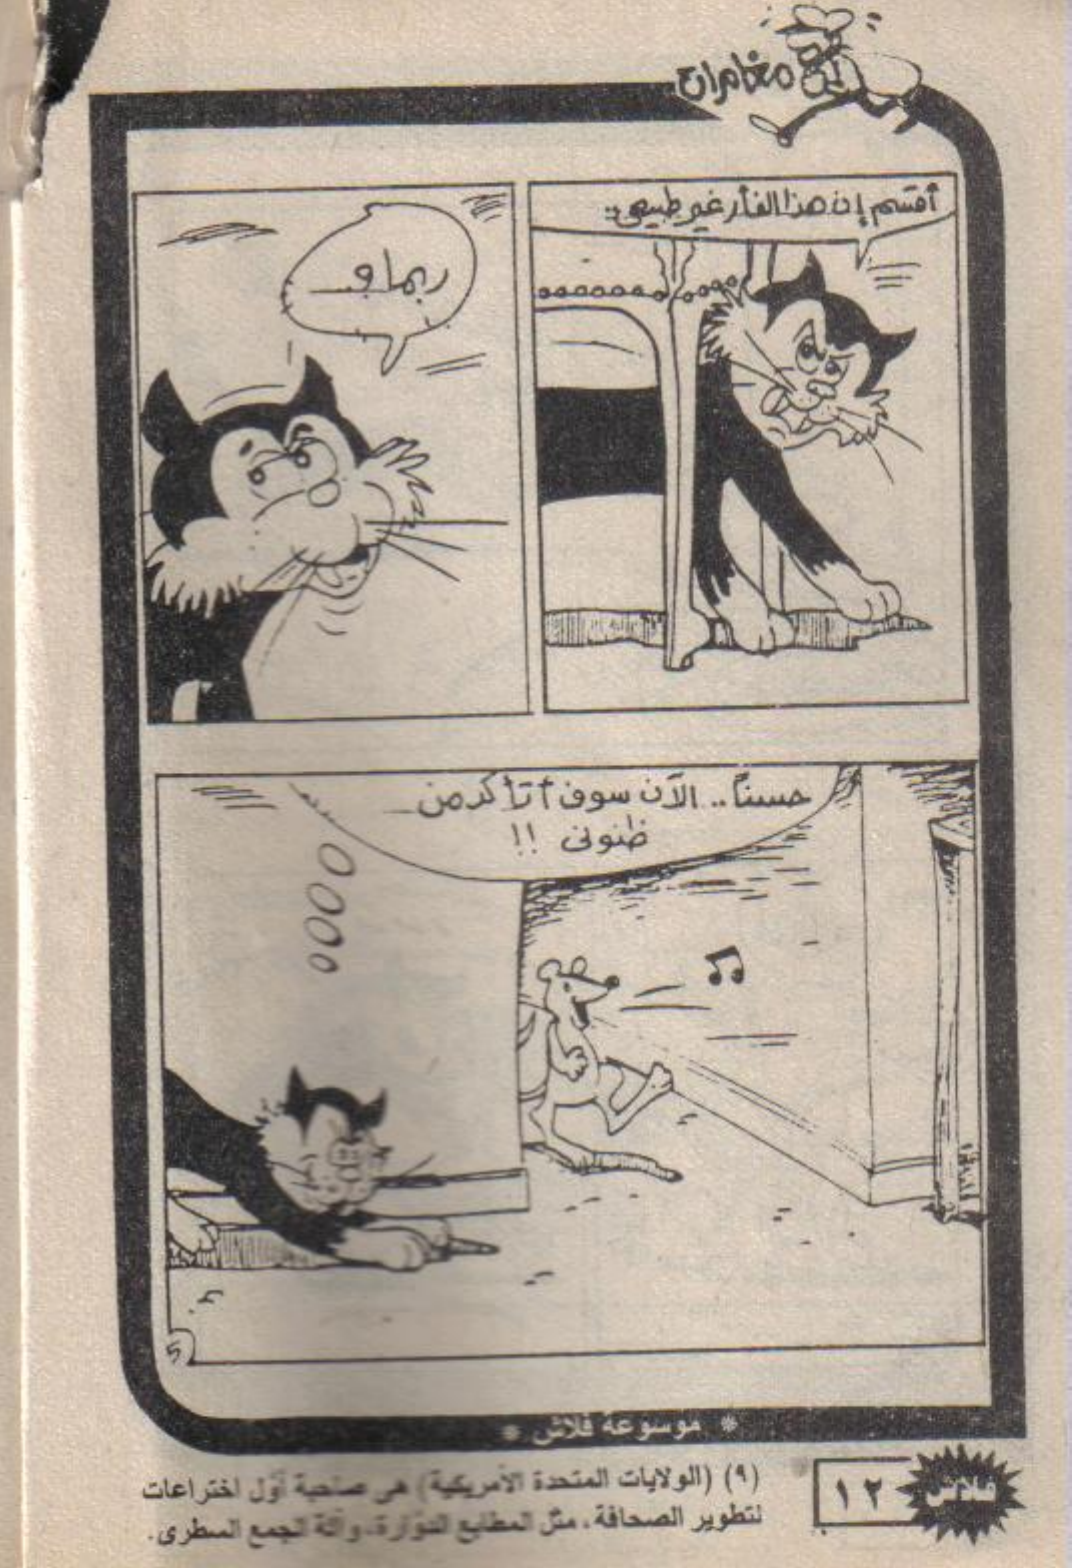 مغامرات
أقسم إن هذا الفأر غير طبيعى..
ربما و
حسناً.. الآن سوف أتأكد من
ظنونى !!
5
* موسوعة فلاش *
(٩) (الولايات المتحدة الأمريكية) هى صاحبة أول اختراعات
لتطوير الصحافة، مثل المطابع الدوارة، وآلة الجمع السطرى.
١٢
فلاش